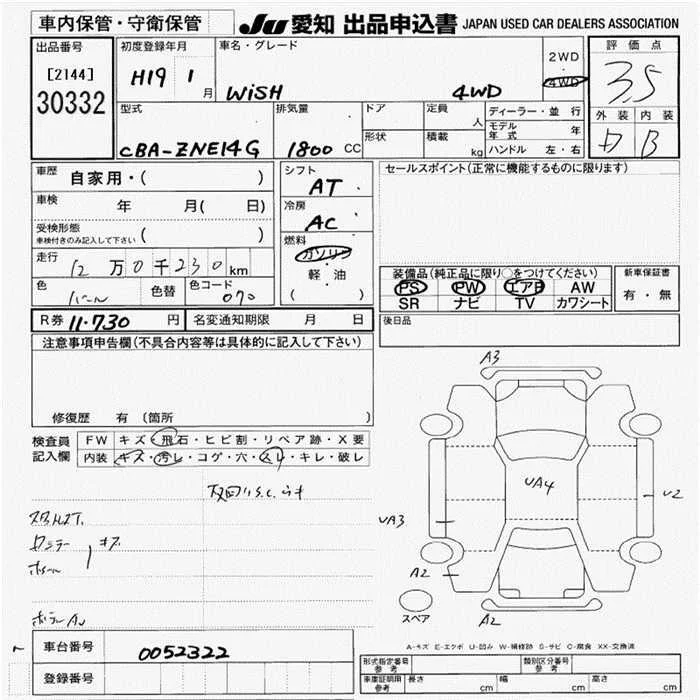 車内保管・守衛保管
JU 愛知 出品申込書 JAPAN USED CAR DEALERS ASSOCIATION
出品番号
[2144]
30332
初度登録年月
H19 1 月
車名・グレード
WiSH 4WD
2WD
・
4WD
評価点
3.5
外装 内装
B
型式
CBA-ZNE14G
排気量
1800 CC
ドア
形状
定員
人
積載
kg
ディーラー・並行
モデル年式 年
ハンドル 左・右
車歴
自家用・( )
車検
年 月( 日)
受検形態
車検付きのみ記入して下さい ( )
走行
12 万 0 千 230 km
色
色替
色コード
070
シフト
AT
冷房
AC
燃料
ガソリン
・
軽・油
( )
セールスポイント(正常に機能するものに限ります)
装備品(純正品に限り○をつけてください)
PS PW エアB AW
SR ナビ TV カワシート
新車保証書
有・無
R券 11.730 円
名変通知期限 月 日
後日品
注意事項申告欄(不具合内容等は具体的に記入して下さい)
修復歴 有 (箇所 )
検査員
記入欄
FW キズ・飛石・ヒビ割・リペア跡・X要
内装 キズ・汚レ・コゲ・穴・スレ・キレ・破レ
A3
UA4
UA3
U2
A2
A2
スペア
A-キズ E-エクボ U-凹み W-補修跡 S-サビ C-腐食 XX-交換済
車台番号
0052322
登録番号
形式指定番号
参考
類別区分番号
参考
車庫証明用
参考
長さ cm
幅 cm
高さ cm